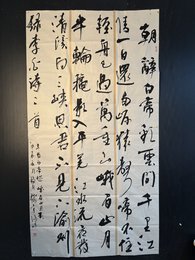 朝辭白帝彩雲間千里江
陵一日還兩岸猿聲啼不住
輕舟已過萬重山峨眉山月
半輪秋影入平羌江水流夜發
清溪向三峽思君不見下渝州
錄李白詩二首